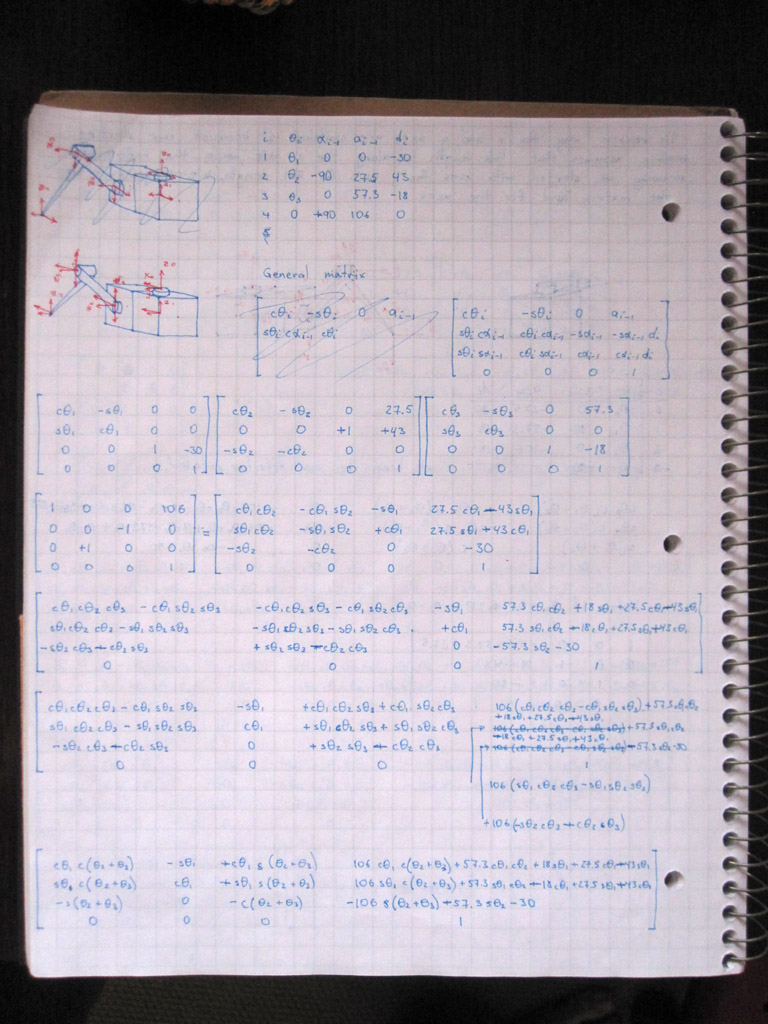 i θi αi-1 ai-1 di
1 θ1 0 0 -30
2 θ2 -90 27.5 43
3 θ3 0 57.3 -18
4 0 +90 106 0
General matrix
cθi -sθi 0 ai-1
sθi cαi-1 cθi
cθi -sθi 0 ai-1
sθi cαi-1 cθi cαi-1 -sαi-1 -sαi-1 di
sθi sαi-1 cθi sαi-1 cαi-1 cαi-1 di
0 0 0 1
cθ1 -sθ1 0 0
sθ1 cθ1 0 0
0 0 1 -30
0 0 0 1
cθ2 -sθ2 0 27.5
0 0 +1 +43
-sθ2 -cθ2 0 0
0 0 0 1
cθ3 -sθ3 0 57.3
sθ3 cθ3 0 0
0 0 1 -18
0 0 0 1
1 0 0 106
0 0 -1 0
0 +1 0 0
0 0 0 1
=
cθ1 cθ2 -cθ1 sθ2 -sθ1 27.5 cθ1 -43sθ1
sθ1 cθ2 -sθ1 sθ2 +cθ1 27.5 sθ1 +43 cθ1
-sθ2 -cθ2 0 -30
0 0 0 1
cθ1 cθ2 cθ3 - cθ1 sθ2 sθ3 -cθ1 cθ2 sθ3 - cθ1 sθ2 cθ3 -sθ1 57.3 cθ1 cθ2 +18 sθ1 +27.5 cθ1 -43 sθ1
sθ1 cθ2 cθ3 - sθ1 sθ2 sθ3 -sθ1 sθ2 sθ3 - sθ1 sθ2 cθ3 +cθ1 57.3 sθ1 cθ2 -18 cθ1 +27.5 sθ1 +43 cθ1
-sθ2 cθ3 - cθ2 sθ3 +sθ2 sθ3 - cθ2 cθ3 0 -57.3 sθ2 -30
0 0 0 1
cθ1 cθ2 cθ3 - cθ1 sθ2 sθ3 -sθ1 +cθ1 cθ2 sθ3 + cθ1 sθ2 cθ3 106 (cθ1 cθ2 cθ3 - cθ1 sθ2 sθ3) +57.3 cθ1 cθ2
+18 sθ1 +27.5 cθ1 -43 sθ1
sθ1 cθ2 cθ3 - sθ1 sθ2 sθ3 cθ1 +sθ1 cθ2 sθ3 + sθ1 sθ2 cθ3 +57.3 sθ1 cθ2
-18 cθ1 +27.5 sθ1 +43 cθ1
-sθ2 cθ3 - cθ2 sθ3 0 +sθ2 sθ3 - cθ2 cθ3 -57.3 sθ2 -30
0 0 0 1
106 (sθ1 cθ2 cθ3 - sθ1 sθ2 sθ3)
+106 (-sθ2 cθ3 - cθ2 sθ3)
cθ1 c(θ2+θ3) -sθ1 +cθ1 s(θ2+θ3) 106 cθ1 c(θ2+θ3) +57.3 cθ1 cθ2 +18 sθ1 +27.5 cθ1 -43 sθ1
sθ1 c(θ2+θ3) cθ1 +sθ1 s(θ2+θ3) 106 sθ1 c(θ2+θ3) +57.3 sθ1 cθ2 -18 cθ1 +27.5 sθ1 +43 cθ1
-s(θ2+θ3) 0 -c(θ2+θ3) -106 s(θ2+θ3) -57.3 sθ2 -30
0 0 0 1